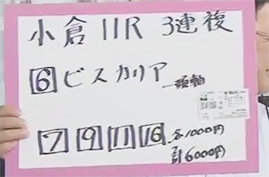 小倉 11R 3連複
6 ビスカリア 一頭軸
7 9 11 16 各1000円
計6000円